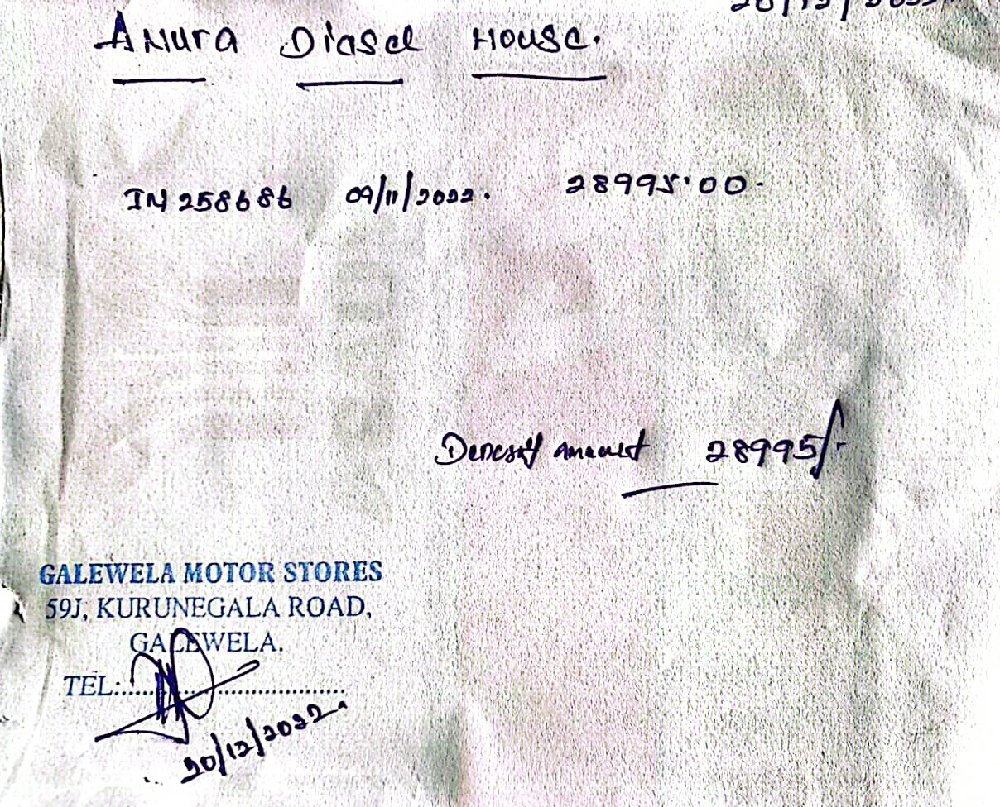 Anura Diesel House.
IN 258686 09/11/2022. 28995.00
amount 28995/-
GALEWELA MOTOR STORES
59J, KURUNEGALA ROAD,
GALEWELA.
TEL:
20/12/2022.